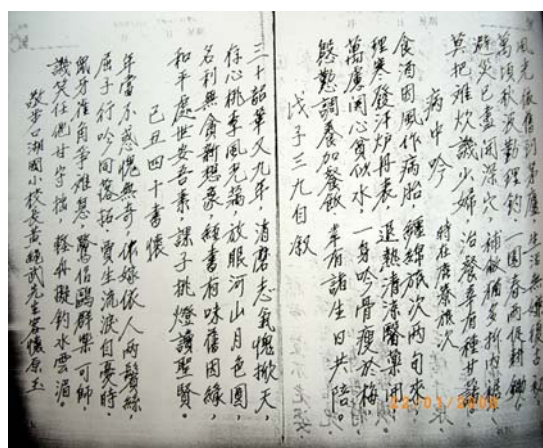 風光依舊到茅廬 生活無嫌復古初
萬頃秋波勤理釣 一園春雨促耕鋤
避災已盡開深穴，補
莫把難炊譏少婦 治餐幸有種甘藷
病中吟 時在 寮旅次
食酒因風作病胎 纏綿旅次兩旬來
理寒發汗炉丹表，退熱清涼醫藥開
萬慮關心貧似水，一身吟骨瘦於梅
慇懃調養加餐飯 幸有諸生日共陪。
戊子三九自叙
三十韶華又九年，消磨志氣愧掀天，
存心桃李風光藹，放眼河山月色圓
名利無貪新想象，經書有味舊因緣，
和平處世安吾素，課子挑燈讀聖賢。
己丑四十書懷
年當不惑愧無奇，依嫁依人兩鬢絲
屈子行吟同落拓 賈生流淚自憂時。
鼠牙雀角爭難息，鷺侶鷗群樂可師，
譏笑任他甘守拙，輕舟擬釣水雲湄。
敬步口湖國小校長黃 武先生客懷原玉
22/01/2008